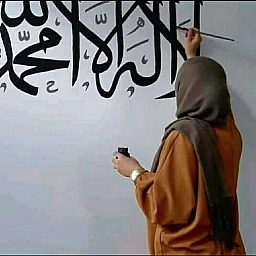 لا إله إلا الله
محمد